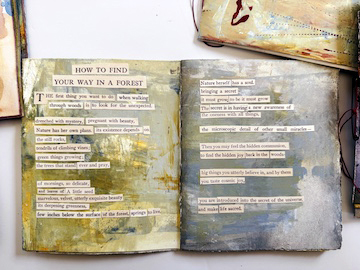 HOW TO FIND
YOUR WAY IN A FOREST
THE first thing you want to do when walking
through woods is to look for the unexpected.
drenched with mystery, pregnant with beauty,
Nature has her own plans. its existence depends on
the still rocks,
tendrils of climbing vines,
green things growing;
the trees that stand, ever and pray.
of mornings, so delicate,
and leaves of A little seed
marvelous, velvet, utterly exquisite beauty
its deepening greenness,
few inches below the surface of the forest, springs to live,
Nature herself has a soul
bringing a secret
it must grow,
The secret is in having a new awareness of
the contact with all things,
the microscopic detail of other small miracles—
Then you may feel the hidden communion,
to find the hidden joy back to the woods.
big things you utterly believe in, and by them
you taste cosmic joy,
you are introduced into the secret of the universe,
and make life sacred.